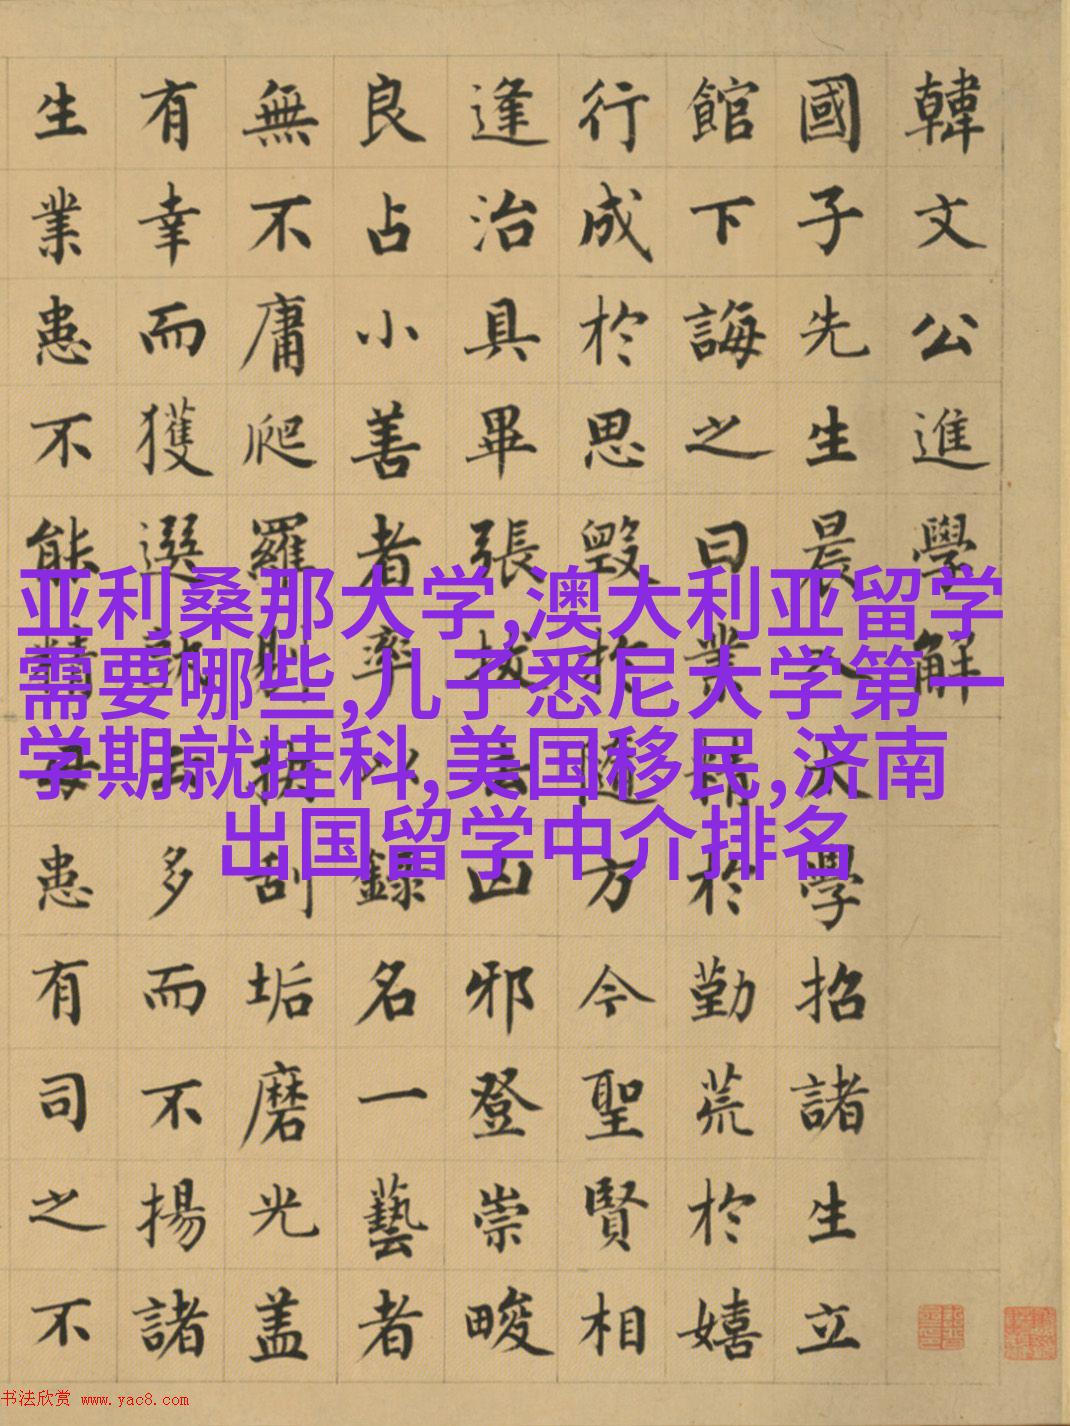 韓文公進學解
國子先生晨入太學招諸生立
館下誨之曰業精於勤荒於嬉
行成於思毀於隨方今聖賢相
逢治具畢張拔去凶邪登崇畯
良占小善者率以錄名一藝者
無不庸爬羅剔抉刮垢磨光盖
有幸而獲選孰云多而不揚諸
生業患不能精毋患有司之不
亚利桑那大学,澳大利亚留学
需要哪些,儿子悉尼大学第一
学期就挂科,美国移民,济南
出国留学中介排名
书法欣赏 www.yac8.com